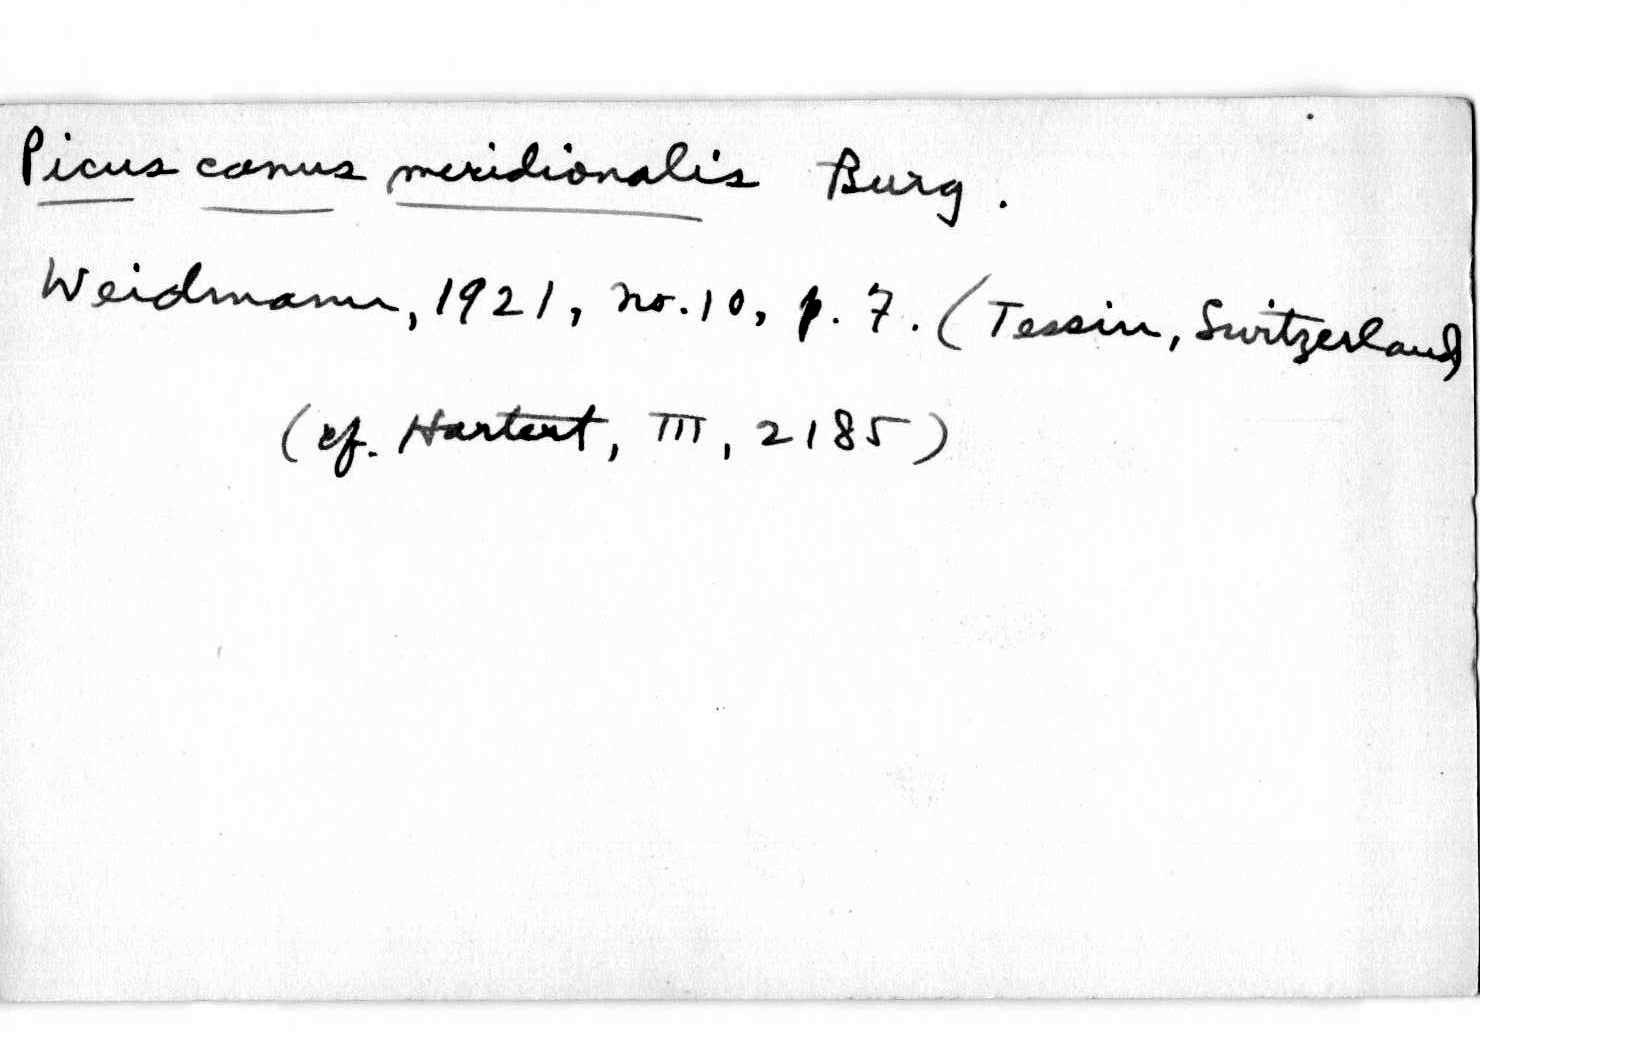 Picus canus meridionalis Burg.
Weidmann, 1921, no. 10, p. 7. (Tessin, Switzerland)
(cf. Hartert, III, 2185)